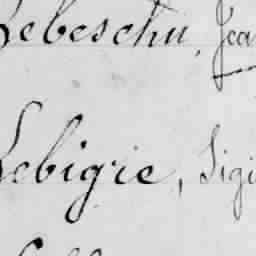 Lebeschu, Jea
Lebigre, Sigi